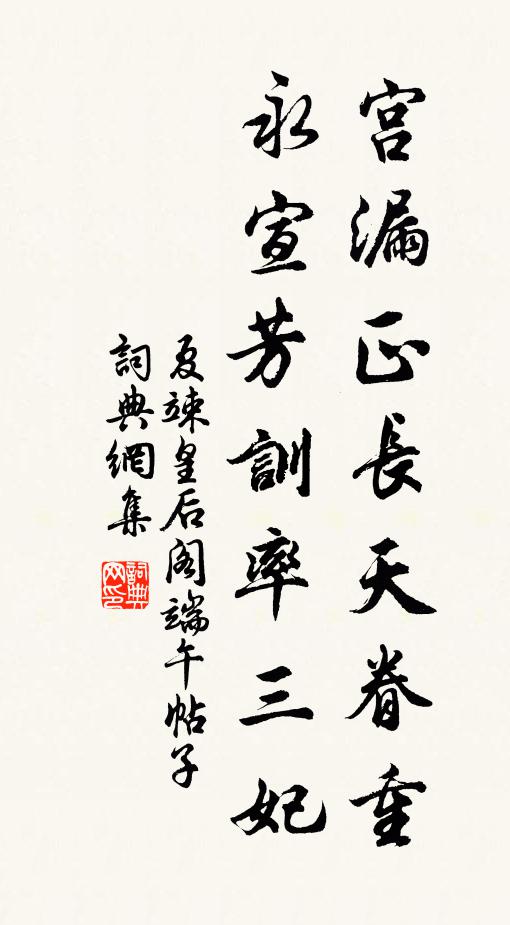 宮漏正長天眷重
永宣芳訓率三妃
夏竦皇后阁端午帖子
詞典網集
詞典
网印